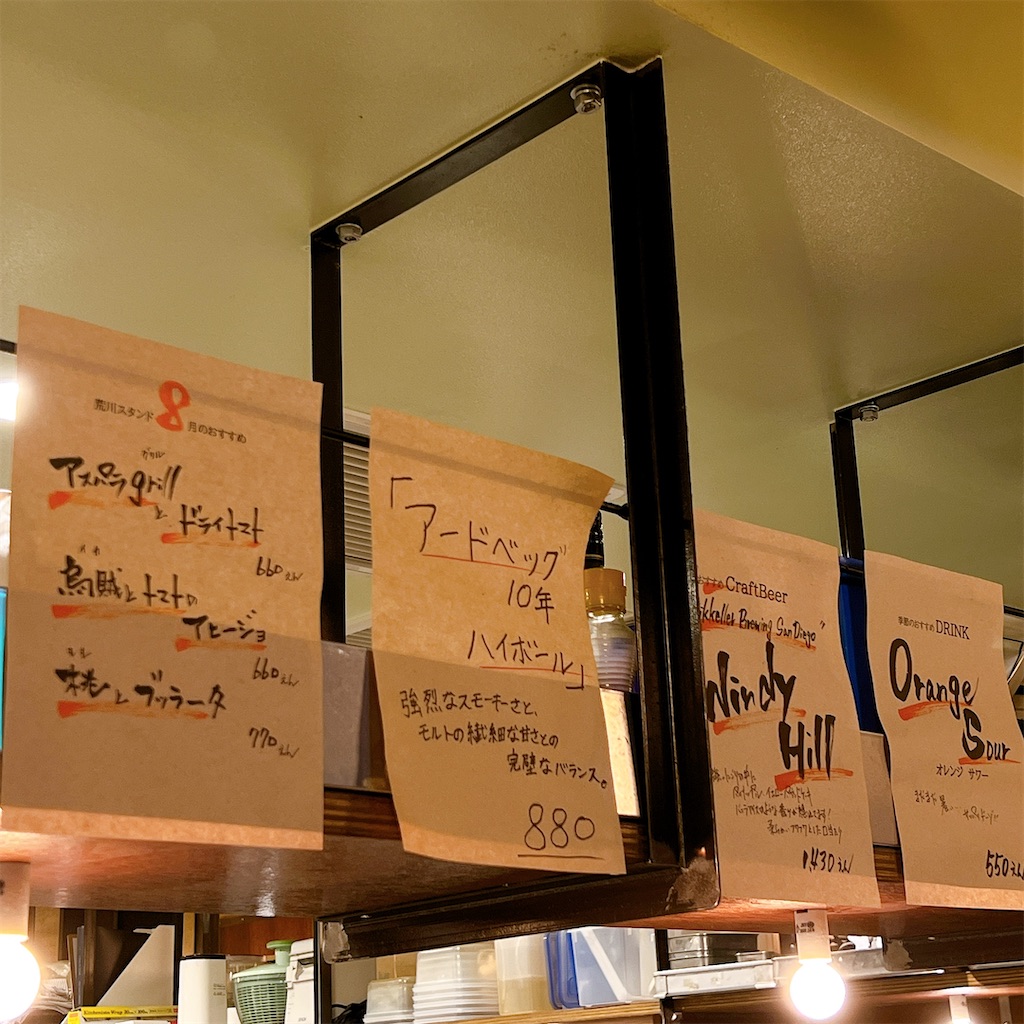 荒川スタンド8月のおすすめ
グリル
アスパラgrill
と ドライトマト
660えん
イカ
烏賊とトマトの
アヒージョ
660えん
モモ
桃とブッラータ
770えん
「アードベッグ
10年
ハイボール」
強烈なスモーキーさと、
モルトの繊細な甘さとの
完璧なバランス。
880
おすすめ CraftBeer
Brewing San Diego"
Windy
Hill
1,430えん
季節のおすすめ DRINK
Orange
Sour
オレンジ サワー
まだまだ暑い
550えん